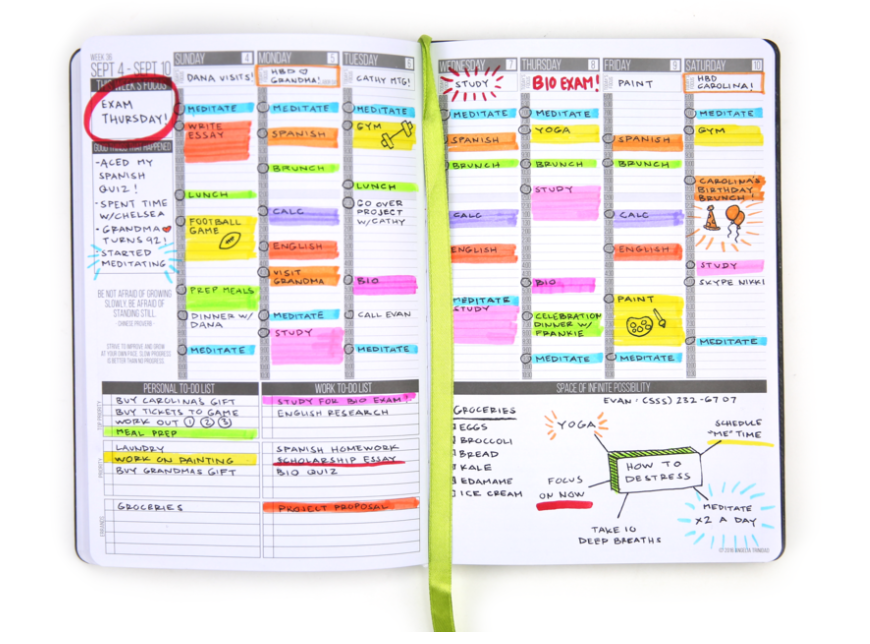 WEEK 36
SEPT 4 - SEPT 10
THIS WEEK'S FOCUS
EXAM
THURSDAY!
GOOD THINGS THAT HAPPENED
- ACED MY
SPANISH
QUIZ!
- SPENT TIME
W/CHELSEA
- GRANDMA
TURNS 92!
- STARTED
MEDITATING
BE NOT AFRAID OF GROWING
SLOWLY, BE AFRAID OF
STANDING STILL.
- CHINESE PROVERB
STRIVE TO IMPROVE AND GROW
AT YOUR OWN PACE. SLOW PROGRESS
IS BETTER THAN NO PROGRESS.
SUNDAY 4
DANA VISITS!
MEDITATE
WRITE
ESSAY
LUNCH
FOOTBALL
GAME
PREP MEALS
DINNER W/
DANA
MEDITATE
MONDAY 5
HBD
GRANDMA!
MEDITATE
SPANISH
BRUNCH
CALC
ENGLISH
VISIT
GRANDMA
MEDITATE
STUDY
TUESDAY 6
CATHY MTG!
MEDITATE
GYM
LUNCH
GO OVER
PROJECT
W/CATHY
BIO
CALL EVAN
MEDITATE
WEDNESDAY 7
STUDY
MEDITATE
SPANISH
BRUNCH
CALC
ENGLISH
MEDITATE
STUDY
THURSDAY 8
BIO EXAM!
MEDITATE
YOGA
BRUNCH
STUDY
BIO
CELEBRATION
DINNER W/
FRANKIE
MEDITATE
FRIDAY 9
PAINT
MEDITATE
SPANISH
BRUNCH
CALC
ENGLISH
PAINT
MEDITATE
SATURDAY 10
HBD
CAROLINA!
MEDITATE
GYM
CAROLINA'S
BIRTHDAY
BRUNCH!
STUDY
SKYPE NIKKI
MEDITATE
PERSONAL TO-DO LIST
BUY CAROLINA'S GIFT
BUY TICKETS TO GAME
WORK OUT 1 2 3
MEAL PREP
LAUNDRY
WORK ON PAINTING
BUY GRANDMAS GIFT
GROCERIES
WORK TO-DO LIST
STUDY FOR BIO EXAM!
ENGLISH RESEARCH
SPANISH HOMEWORK
SCHOLARSHIP ESSAY
BIO QUIZ
PROJECT PROPOSAL
TOP PRIORITY
PRIORITY
ERRANDS
SPACE OF INFINITE POSSIBILITY
EVAN: (555) 232-6707
GROCERIES
EGGS
BROCCOLI
BREAD
KALE
EDAMAME
ICE CREAM
YOGA
SCHEDULE
"ME" TIME
HOW TO
DESTRESS
FOCUS
ON NOW
MEDITATE
X2 A DAY
TAKE 10
DEEP BREATHS